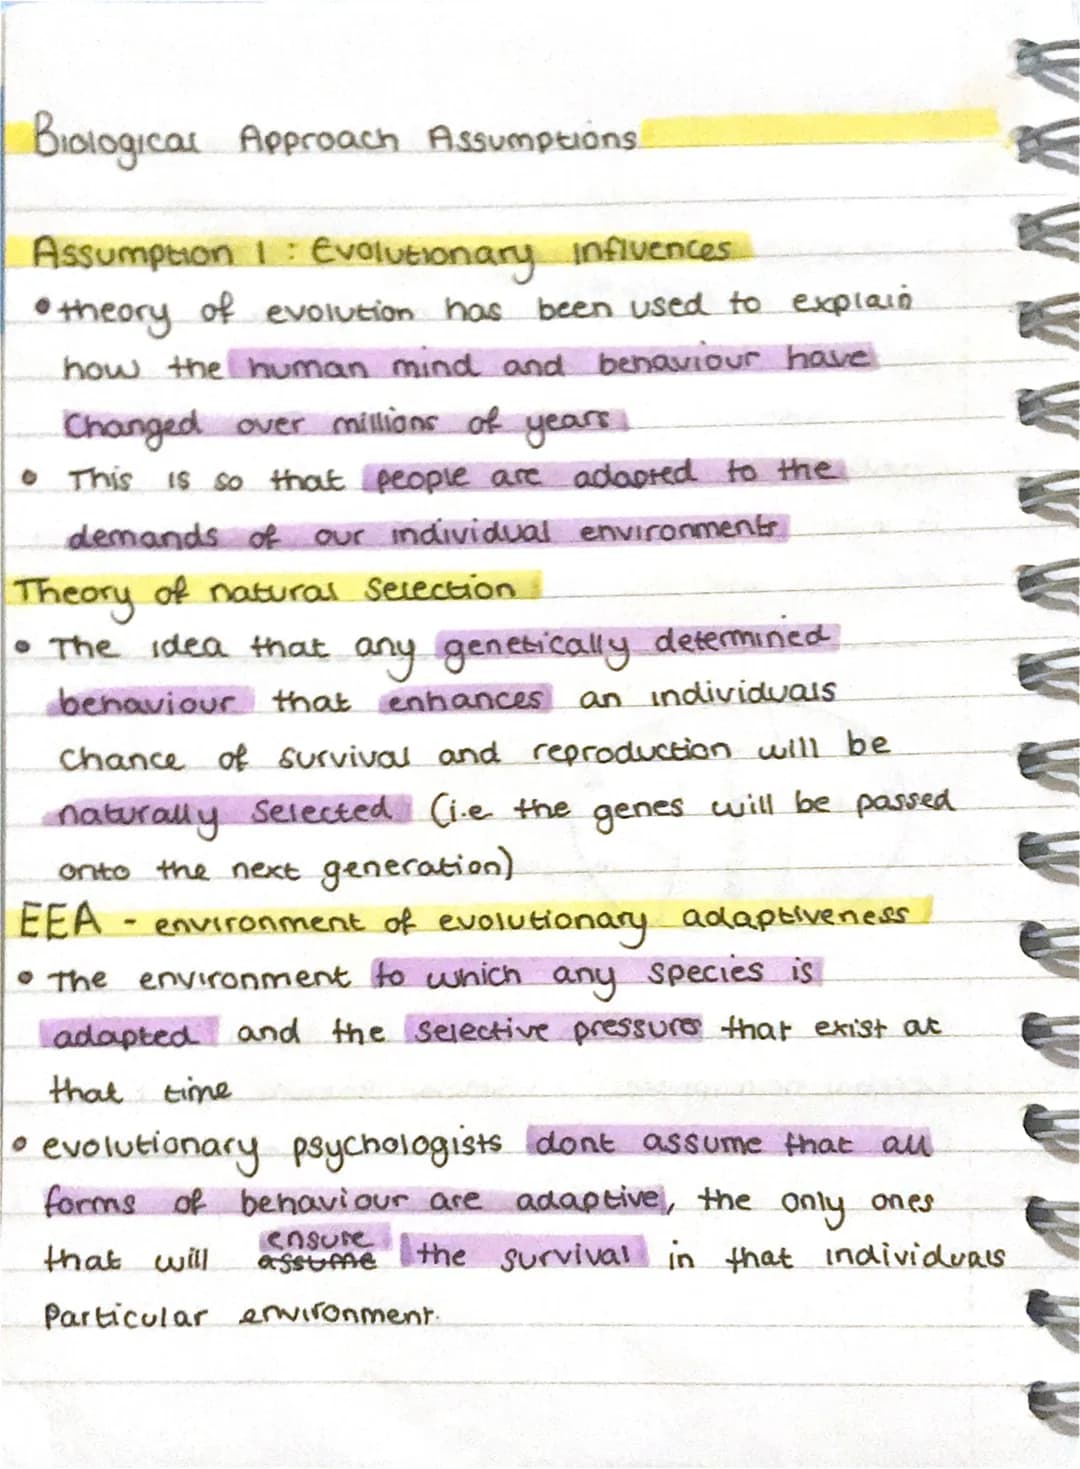 Biological Approach Assumptions
Assumption 1 : Evolutionary Influences
• theory of evolution has been used to explain
how the human mind and behaviour have
Changed over millions of years
• This is so that people are adapted to the
demands of our individual environments
Theory of natural Selection
• The idea that any genetically determined
behaviour that enhances an individuals
chance of survival and reproduction will be
naturally Selected (i.e the genes will be passed
onto the next generation)
EEA - environment of evolutionary adaptiveness
• The environment to which any species is
adapted and the selective pressures that exist at
that time
• evolutionary psychologists dont assume that all
forms of behaviour are adaptive, the only ones
ensure
that will assume the survival in that individuals
Particular environment.